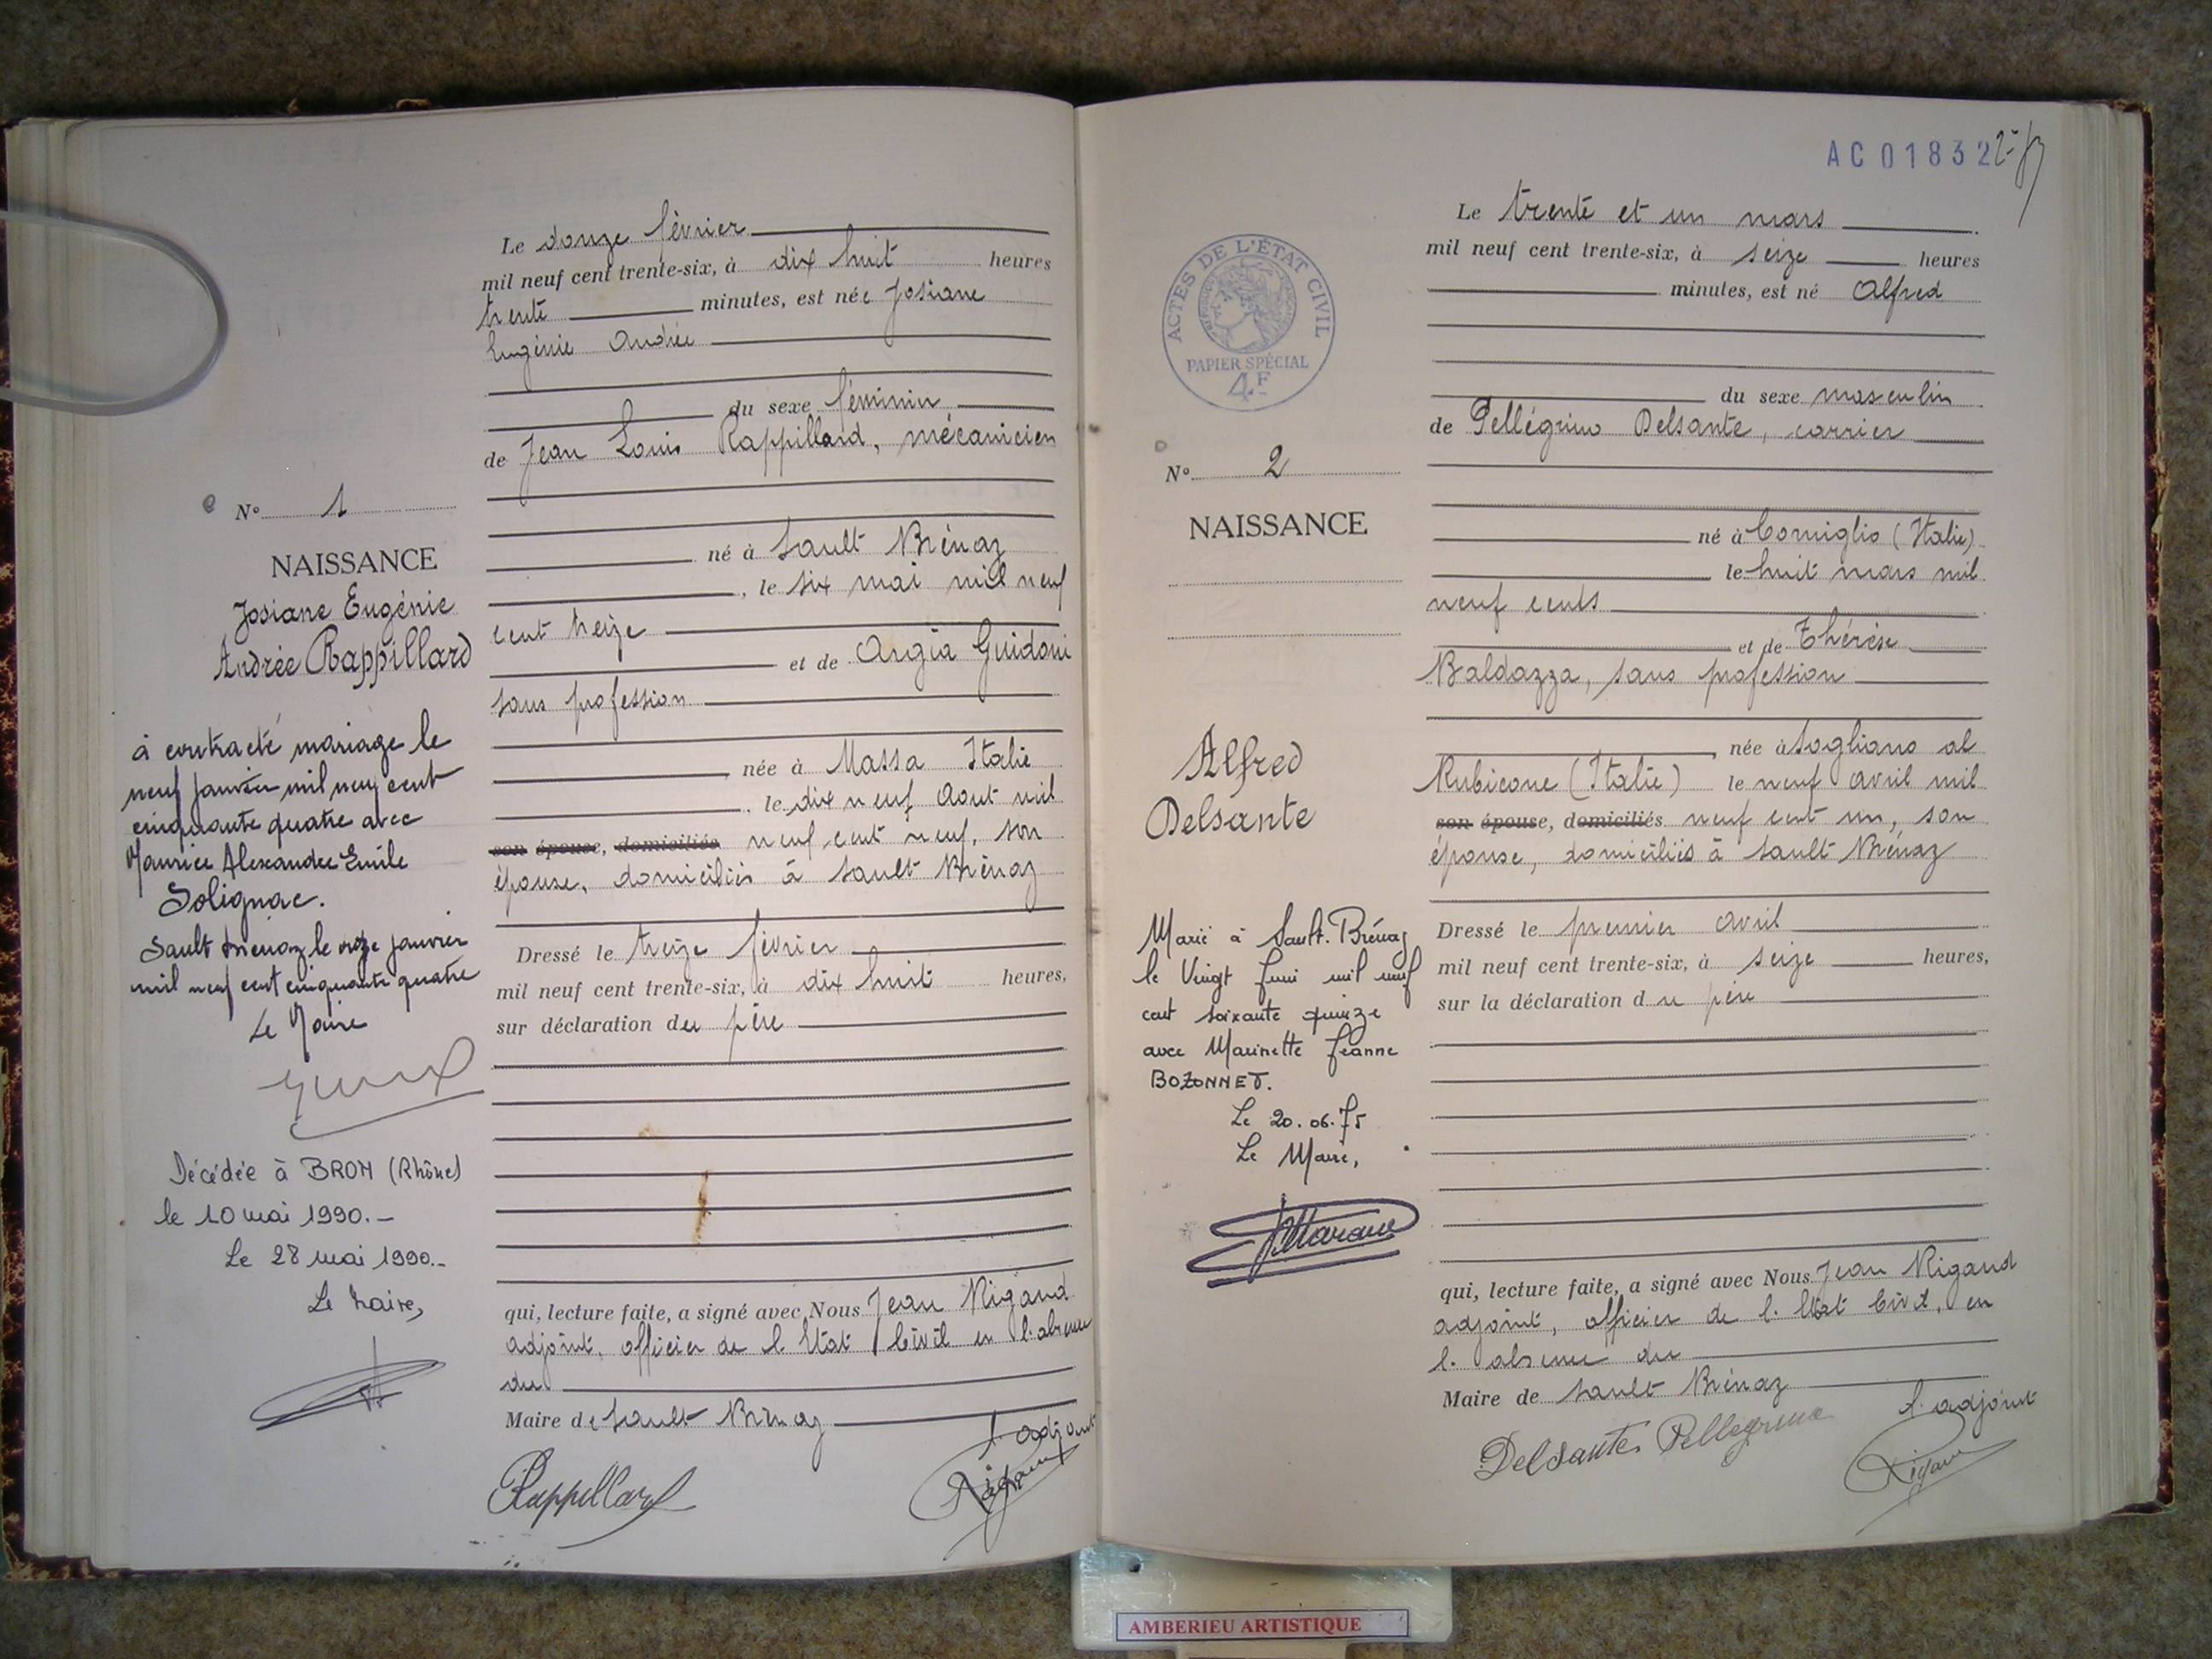 Le douze février
mil neuf cent trente-six, à dix huit heures
trente minutes, est née Josiane
Eugénie Andrée
du sexe féminin
de Jean Louis Rappillard, mécanicien
né à Sault Brénaz
, le six mai mil neuf
cent treize
et de Argia Guidoni
sans profession
née à Massa Italie
, le dix neuf Aout mil
son épouse, domiciliés neuf cent neuf, son
épouse, domiciliés à Sault Brénaz
Dressé le treize février
mil neuf cent trente-six, à dix huit heures,
sur déclaration du père
qui, lecture faite, a signé avec Nous Jean Rigaud
adjoint, officier de l'Etat Civil en l'absence
du
Maire de Sault Brénaz
l'adjoint
Rappillard
Rigaud
No 1
NAISSANCE
Josiane Eugénie
Andrée Rappillard
à contracté mariage le
neuf janvier mil neuf cent
cinquante quatre avec
Maurice Alexandre Emile
Solignac.
Sault Brénaz le onze janvier
mil neuf cent cinquante quatre
Le Maire
Décédée à BRON (Rhône)
le 10 mai 1990.-
Le 28 mai 1990.-
Le Maire,
AC 01832
Le trente et un mars
mil neuf cent trente-six, à seize heures
minutes, est né Alfred
du sexe masculin
de Pellégrino Delsante, carrier
né à Corniglio (Italie)
le huit mars mil
neuf cents
et de Thérèse
Baldazza, sans profession
née à Sogliano al
Rubicone (Italie) le neuf avril mil
son épouse, domiciliés neuf cent un, son
épouse, domiciliés à Sault Brénaz
Dressé le premier avril
mil neuf cent trente-six, à seize heures,
sur la déclaration du père
qui, lecture faite, a signé avec Nous Jean Rigaud
adjoint, officier de l'Etat Civil, en
l'absence du
Maire de Sault Brénaz
l'adjoint
Delsante Pellegrino
Rigaud
ACTES DE L'ÉTAT CIVIL
PAPIER SPÉCIAL
4F
No 2
NAISSANCE
Alfred
Delsante
Marié à Sault-Brénaz
le Vingt Juin mil neuf
cent soixante quinze
avec Marinette Jeanne
BOZONNET.
Le 20.06.75
Le Maire,
AMBERIEU ARTISTIQUE